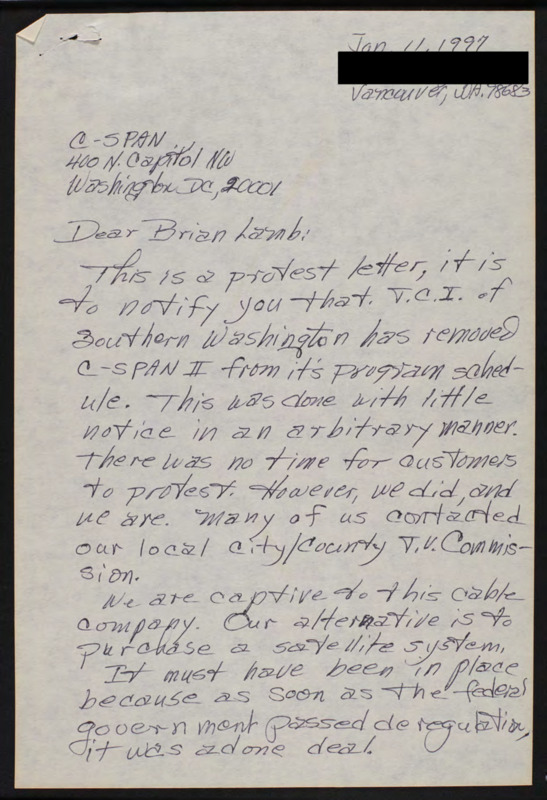 Jan 11, 1997
Vancouver, WA. 98683
C-SPAN
400 N. Capitol NW
Washington DC, 20001
Dear Brian Lamb:
This is a protest letter, it is
to notify you that. T.C.I. of
Southern Washington has removed
C-SPAN II from it's program sched-
ule. This was done with little
notice in an arbitrary manner.
There was no time for customers
to protest. However, we did, and
we are. Many of us contacted
our local city/county T.V. Commis-
sion.
We are captive to this cable
company. Our alternative is to
purchase a satellite system.
It must have been in place
because as soon as the federal
government passed deregulation,
it was a done deal.